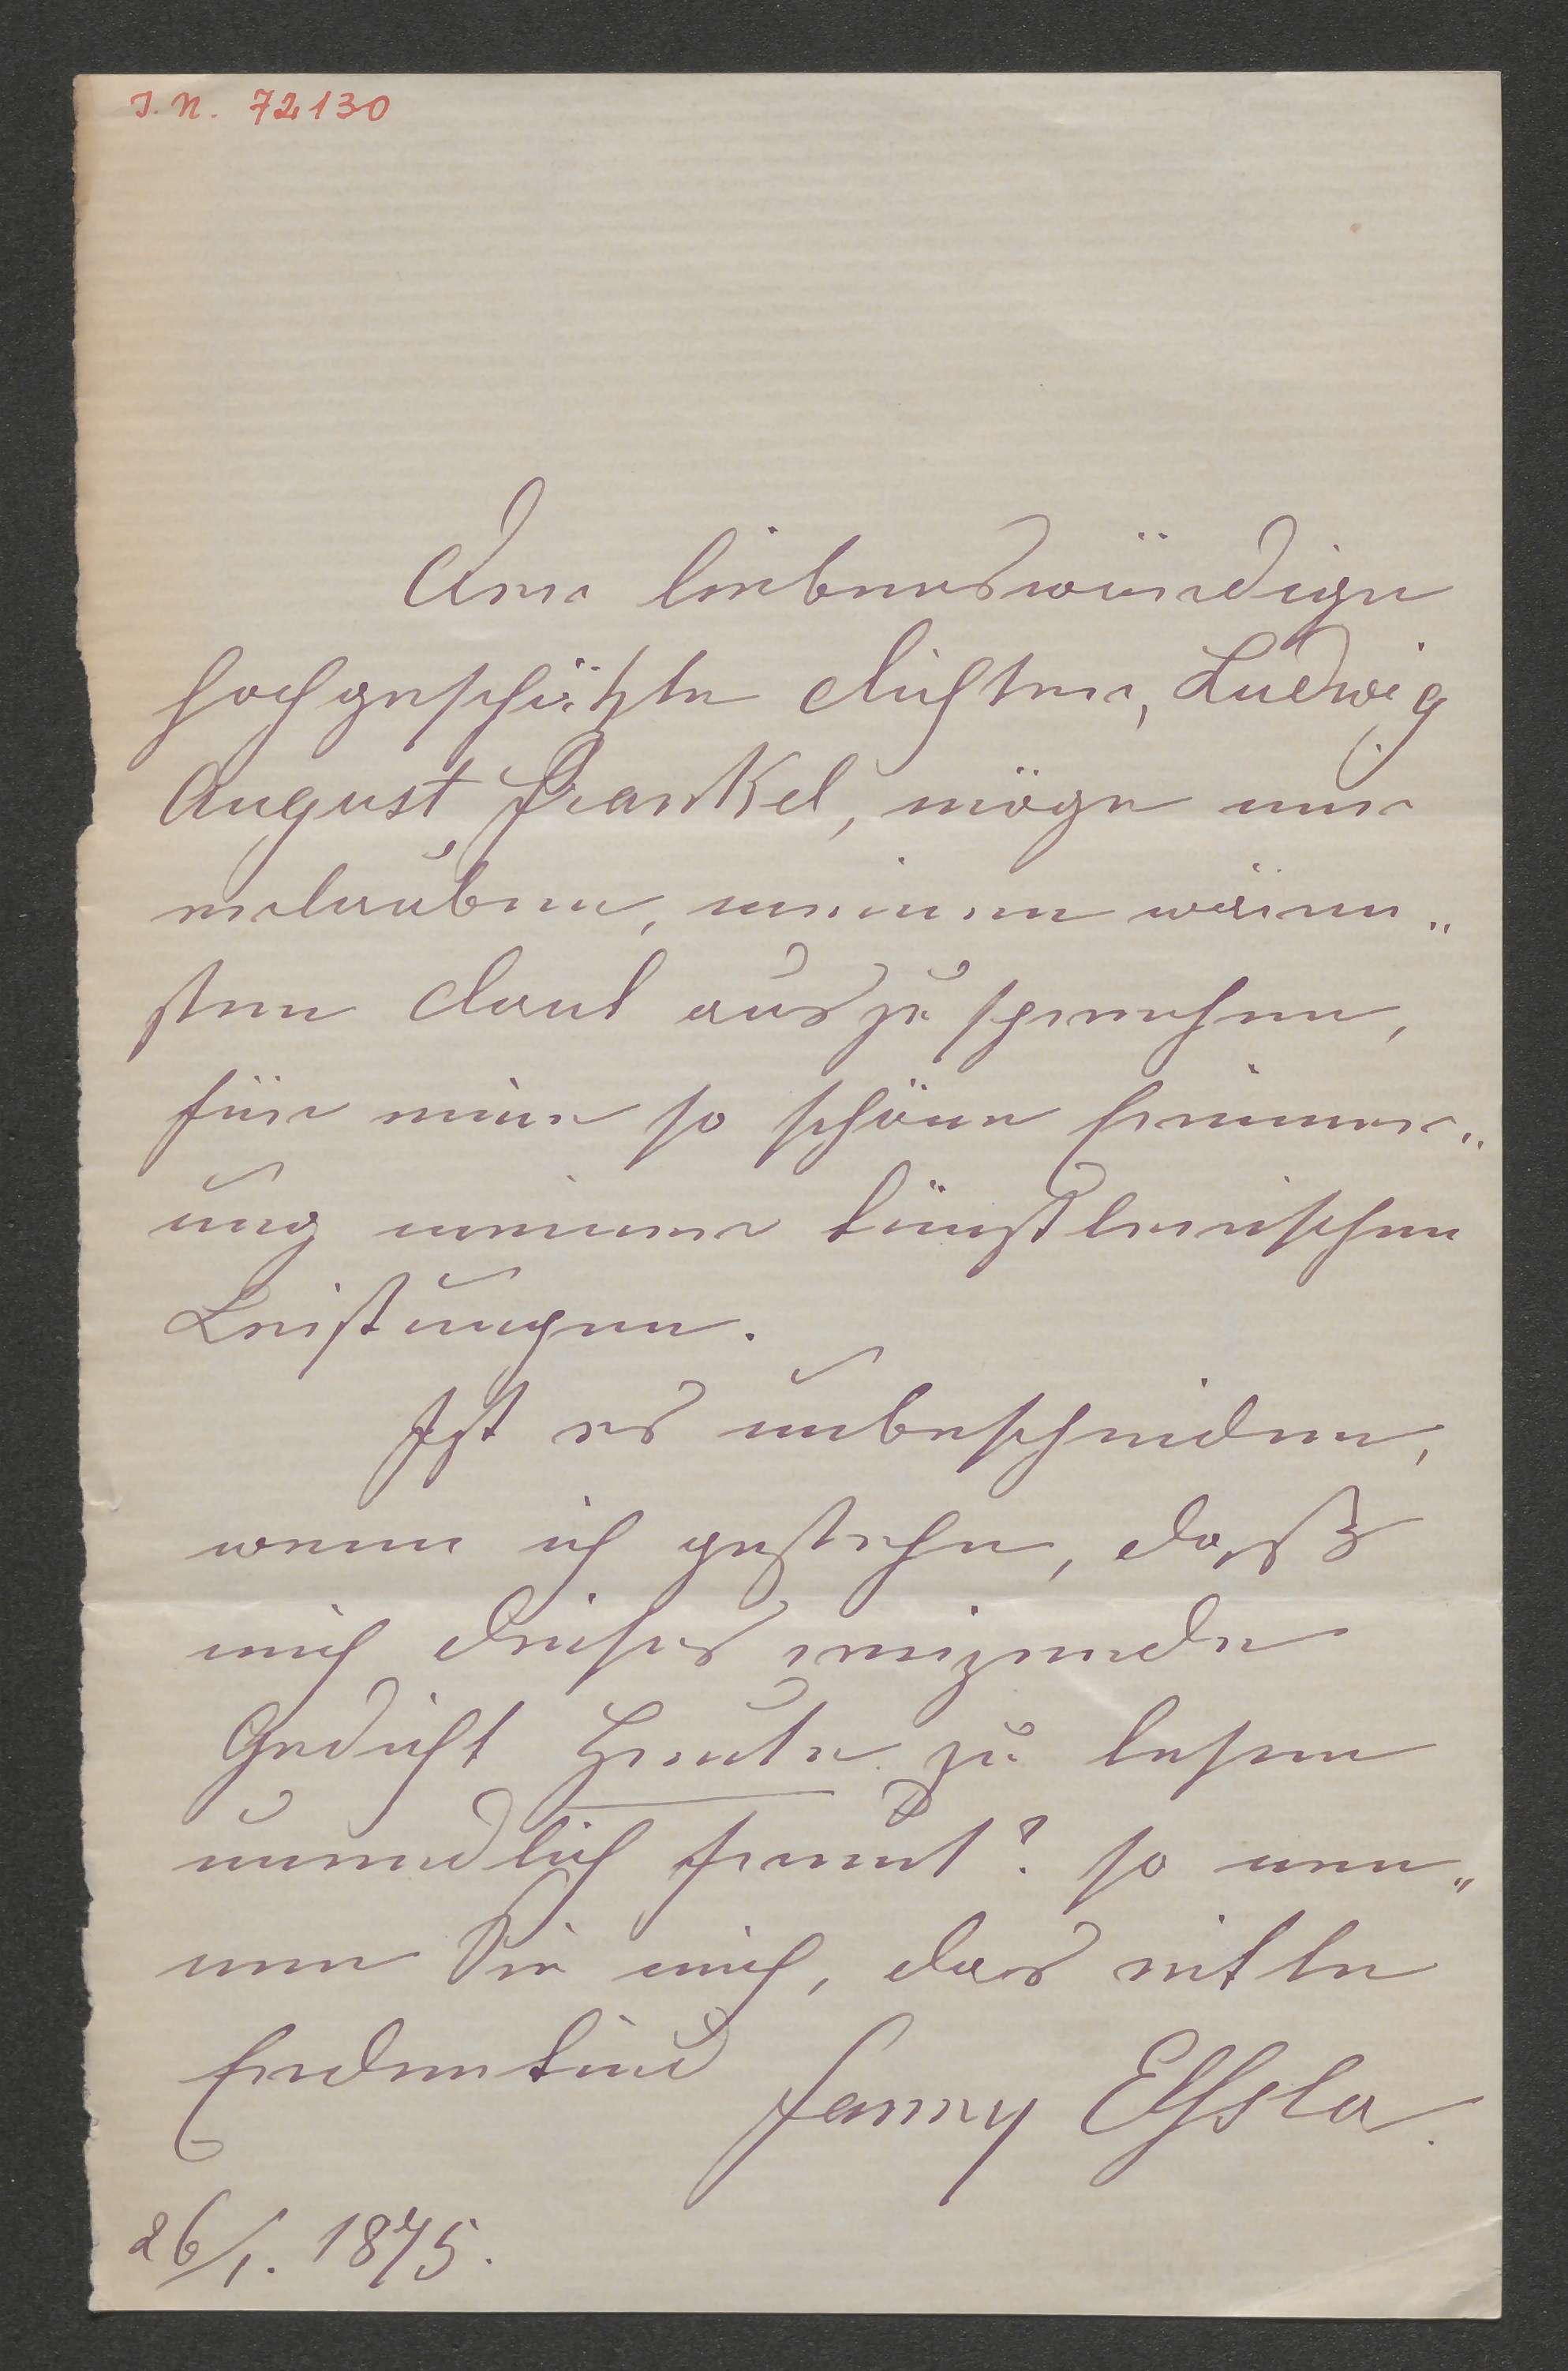 I. N. 72130
Der liebenswürdige
hochgeschätzte Dichter, Ludwig
August Frankel, möge mir
erlauben, meinen wärm„
sten Dank auszusprechen,
für eine so schöne Erinner„
ung meiner künstlerischen
Leistungen.
Ist es unbescheiden,
wenn ich gestehe, daß
mich dieses reizende
Gedicht Heute zu lesen
unendlich freut? so nen„
nen Sie mich, das eitle
Erdenkind
Fanny Elssler.
26/1. 1875.